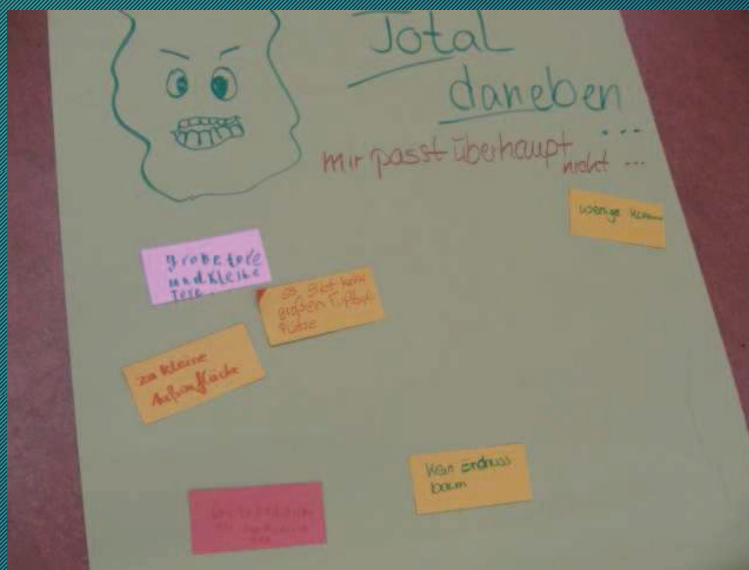 Total
daneben
...
mir passt überhaupt
nicht ...
wenige
große tore
und kleine
Tore.
es gibt keine
großen Fußball
Plätze
zu kleine
Außenfläche
Kein Erdnuss
baum